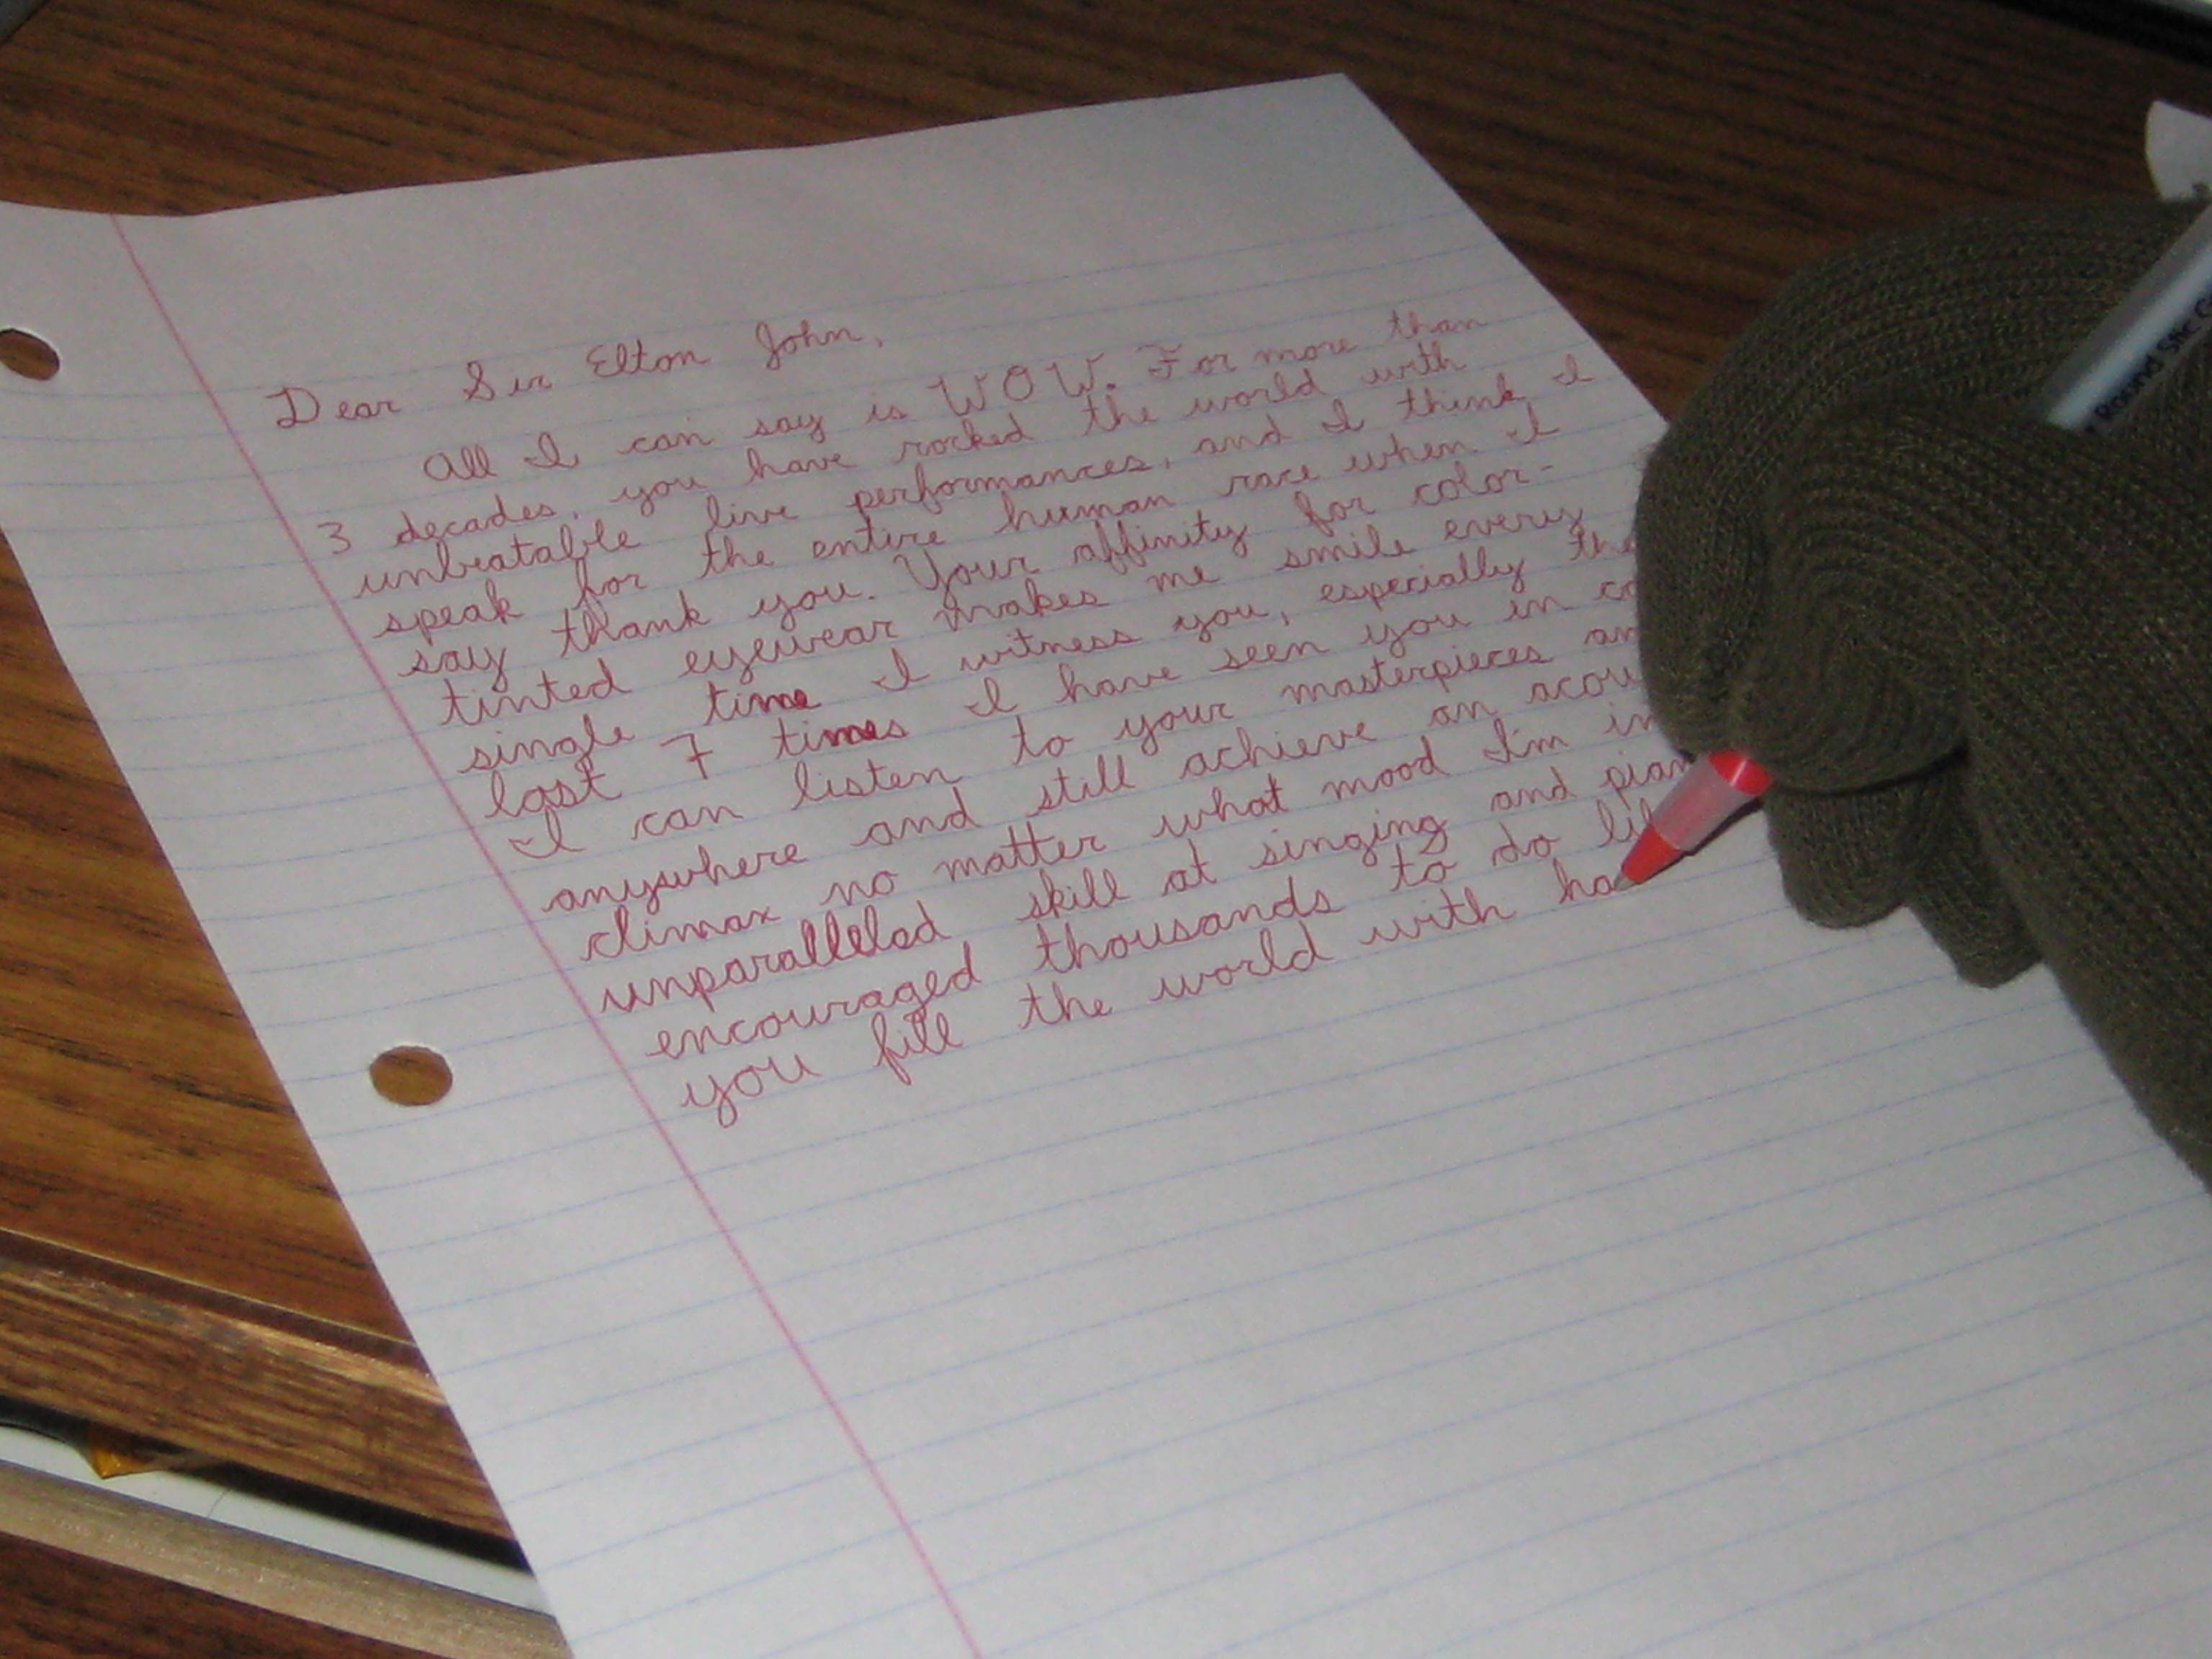 Dear Sir Elton John,
All I can say is WOW. For more than
3 decades, you have rocked the world with
unbeatable live performances, and I think I
speak for the entire human race when I
say thank you. Your affinity for color-
tinted eyewear makes me smile every
single time I witness you, especially the
last 7 times I have seen you in
I can listen to your masterpieces
anywhere and still achieve an
climax no matter what mood I'm in
unparalleled skill at singing and
encouraged thousands to do
you fill the world with ha
Round Stic